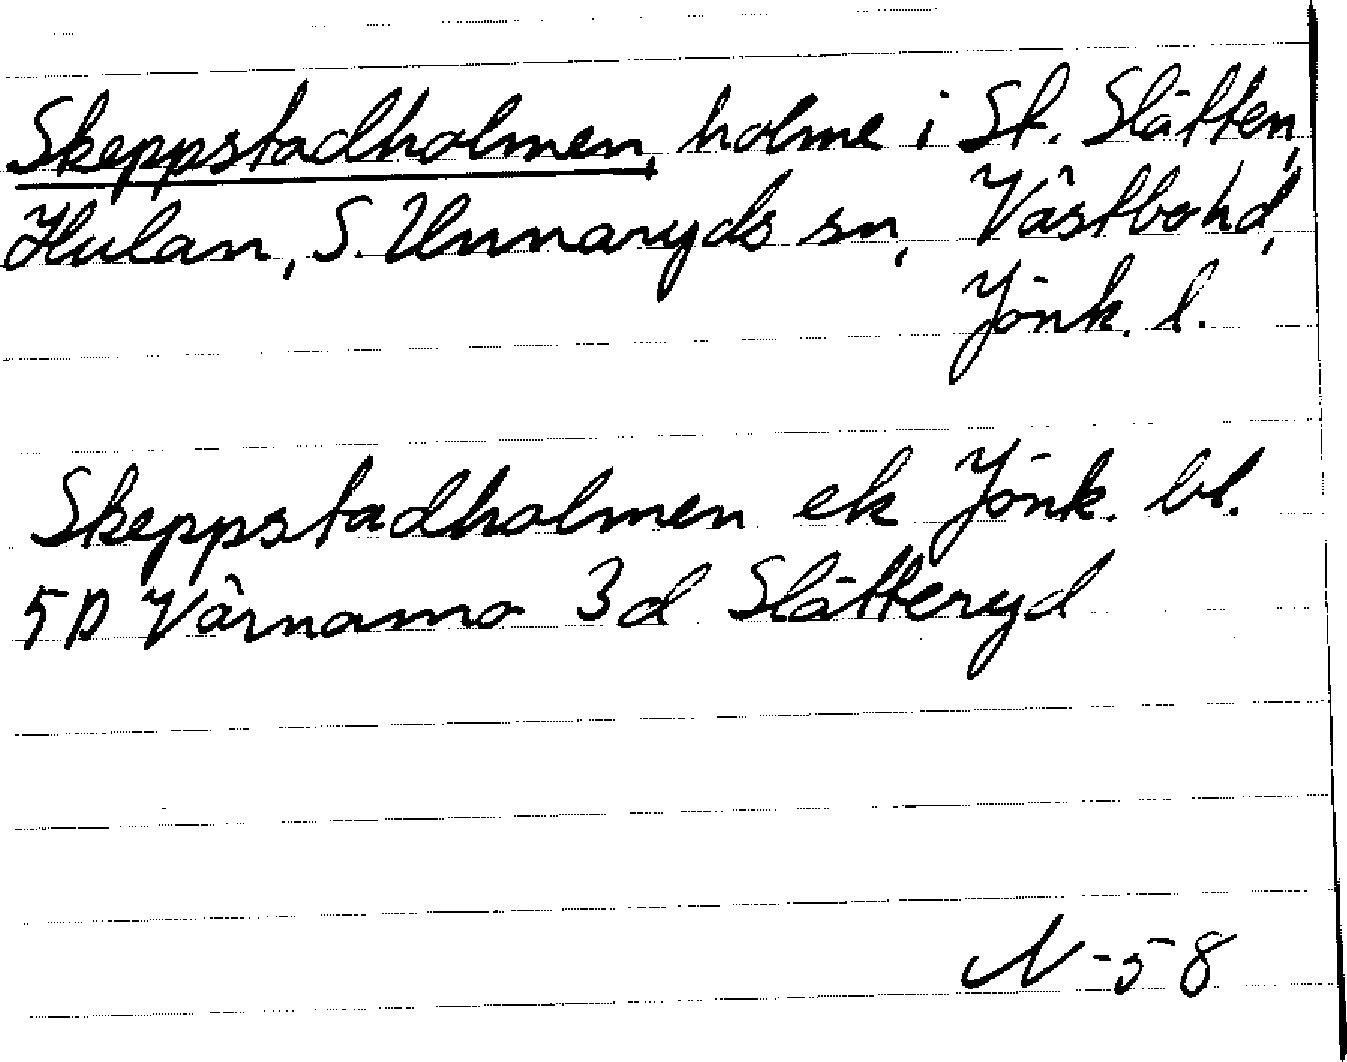 Skeppstadholmen, holme i St. Slätten,
Hulan, S. Unnaryds sn, Västbo hd,
Jönk. l.
Skeppstadholmen ek Jönk. bl.
5D Värnamo 3d Slätteryd
N-58